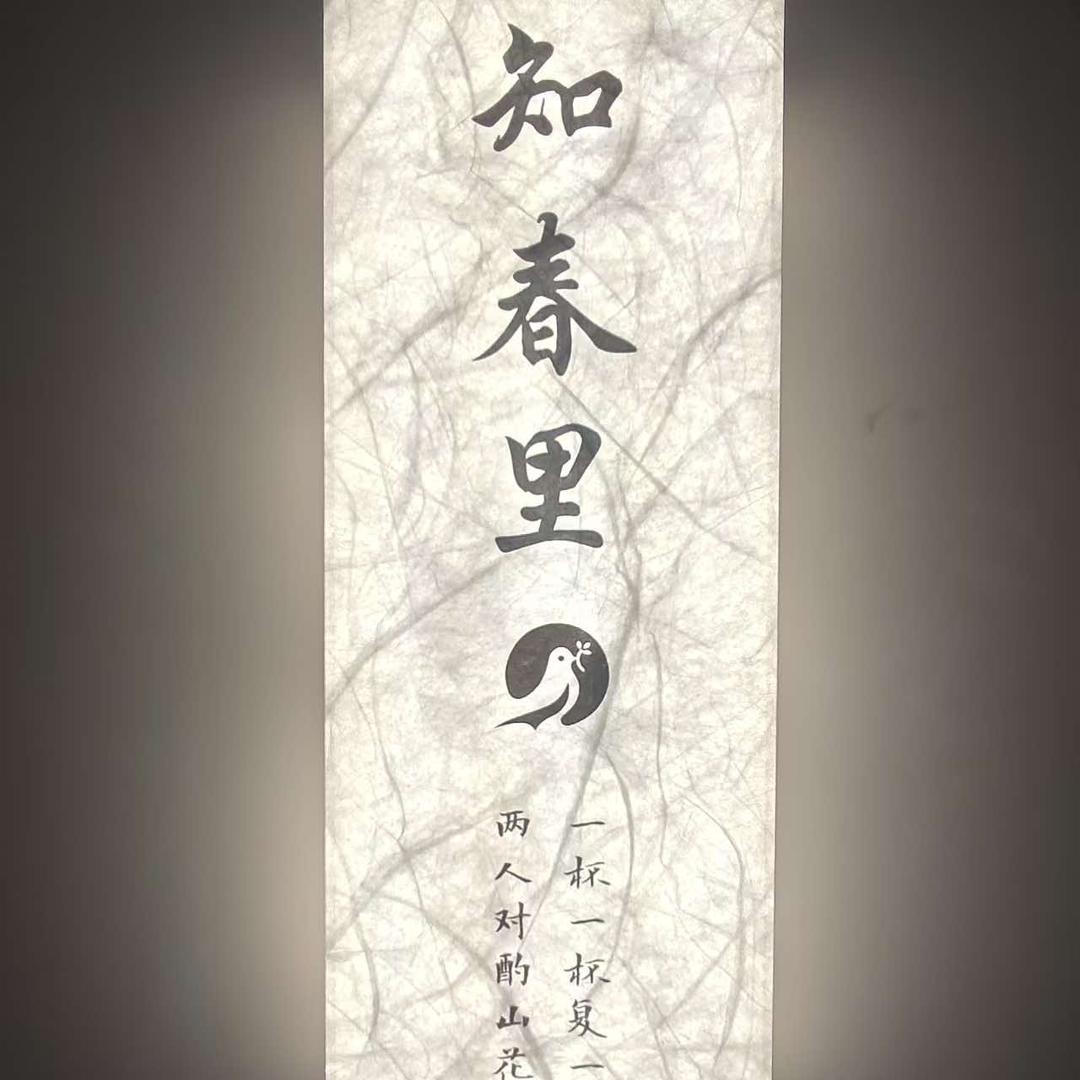 知春里
一杯一杯复一
两人对酌山花